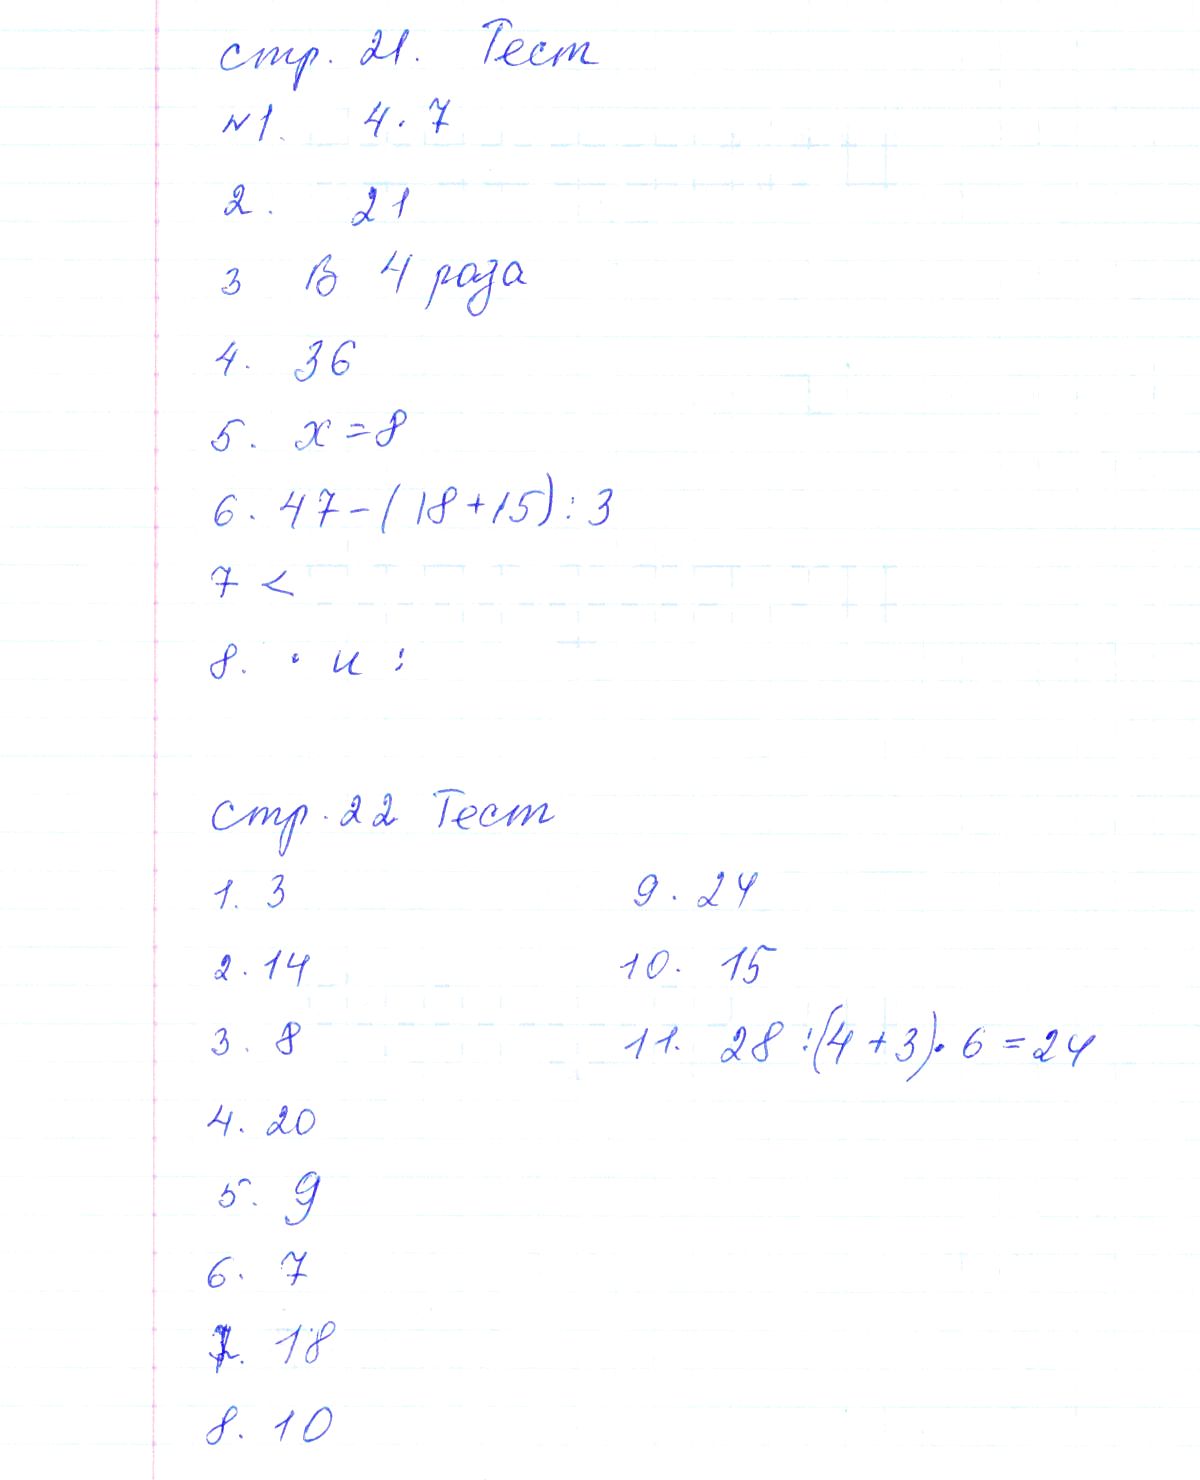 стр. 21. Тест
№1. 4 · 7
2. 21
3 В 4 раза
4. 36
5. х = 8
6. 47 - (18 + 15) : 3
7 <
8. · и :
стр. 22 Тест
1. 3
2. 14
3. 8
4. 20
5. 9
6. 7
7. 18
8. 10
9. 24
10. 15
11. 28 : (4 + 3) · 6 = 24